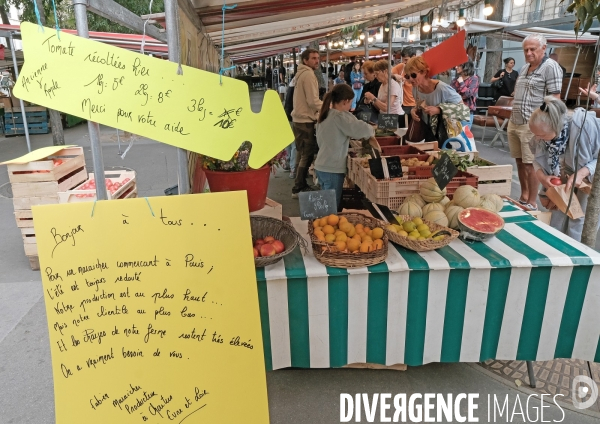 Tomate récoltées hier . . .
Ancienne 1kg : 5€
& Ananas 2kg : 8€ 3kg =
10€
Merci pour votre aide
Bonjour à tous . . .
Pour un maraicher commercant à Paris,
l'été est toujours redouté
Notre production est au plus haut . . .
Mais notre clientèle au plus bas . . .
Et les charges de notre ferme restent très élevées
On a vraiment besoin de vous .
Fabien maraicher
Producteur
à Chartres
Eure et Loir
DIVERGENCE IMAGES